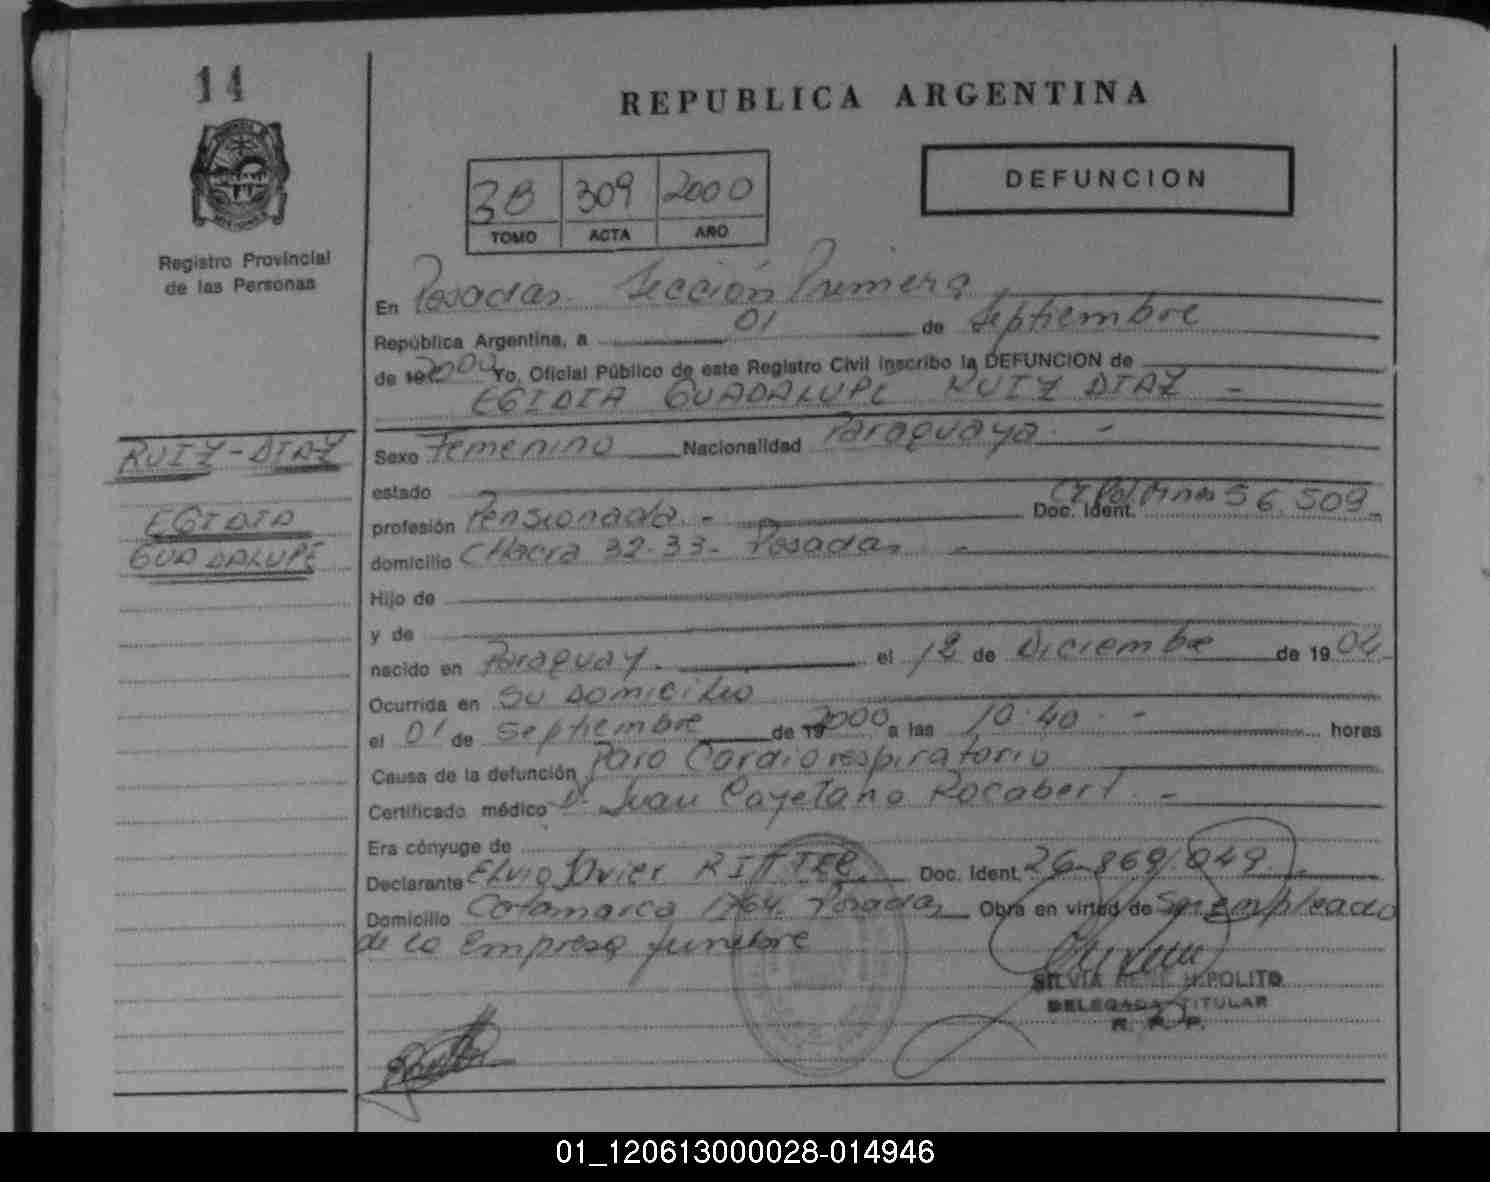 14
REPUBLICA ARGENTINA
DEFUNCION
3B 309 2000
TOMO ACTA AÑO
Registro Provincial
de las Personas
En Posadas. Sección Primera
República Argentina, a 01 de Septiembre
de 19 2000 Yo, Oficial Público de este Registro Civil inscribo la DEFUNCION de
EGIDIA GUADALUPE RUIZ DIAZ -
RUIZ-DIAZ
EGIDIA
GUADALUPE
Sexo Femenino Nacionalidad Paraguaya. -
estado
profesión Pensionada. - Doc. Ident. Ce. Pol. Mnes 56.509.-
domicilio CHacra 32-33- Posadas -
Hijo de
y de
nacido en Paraguay. el 12 de Diciembre de 19 04
Ocurrida en Su Domicilio
el 01 de Septiembre de 19 2000 a las 10:40. - horas
Causa de la defunción Paro Cardiorespiratorio
Certificado médico Dr. Juan Cayetano Rocabert. -
Era cónyuge de
Declarante Elvio Javier RITTER. Doc. Ident. 26-869.049.-
Domicilio Catamarca 1764. Posadas Obra en virtud de Ser empleado
de la Empresa funebre
SILVIA HIPOLITO
DELEGADA TITULAR
R. P. P.
01_120613000028-014946